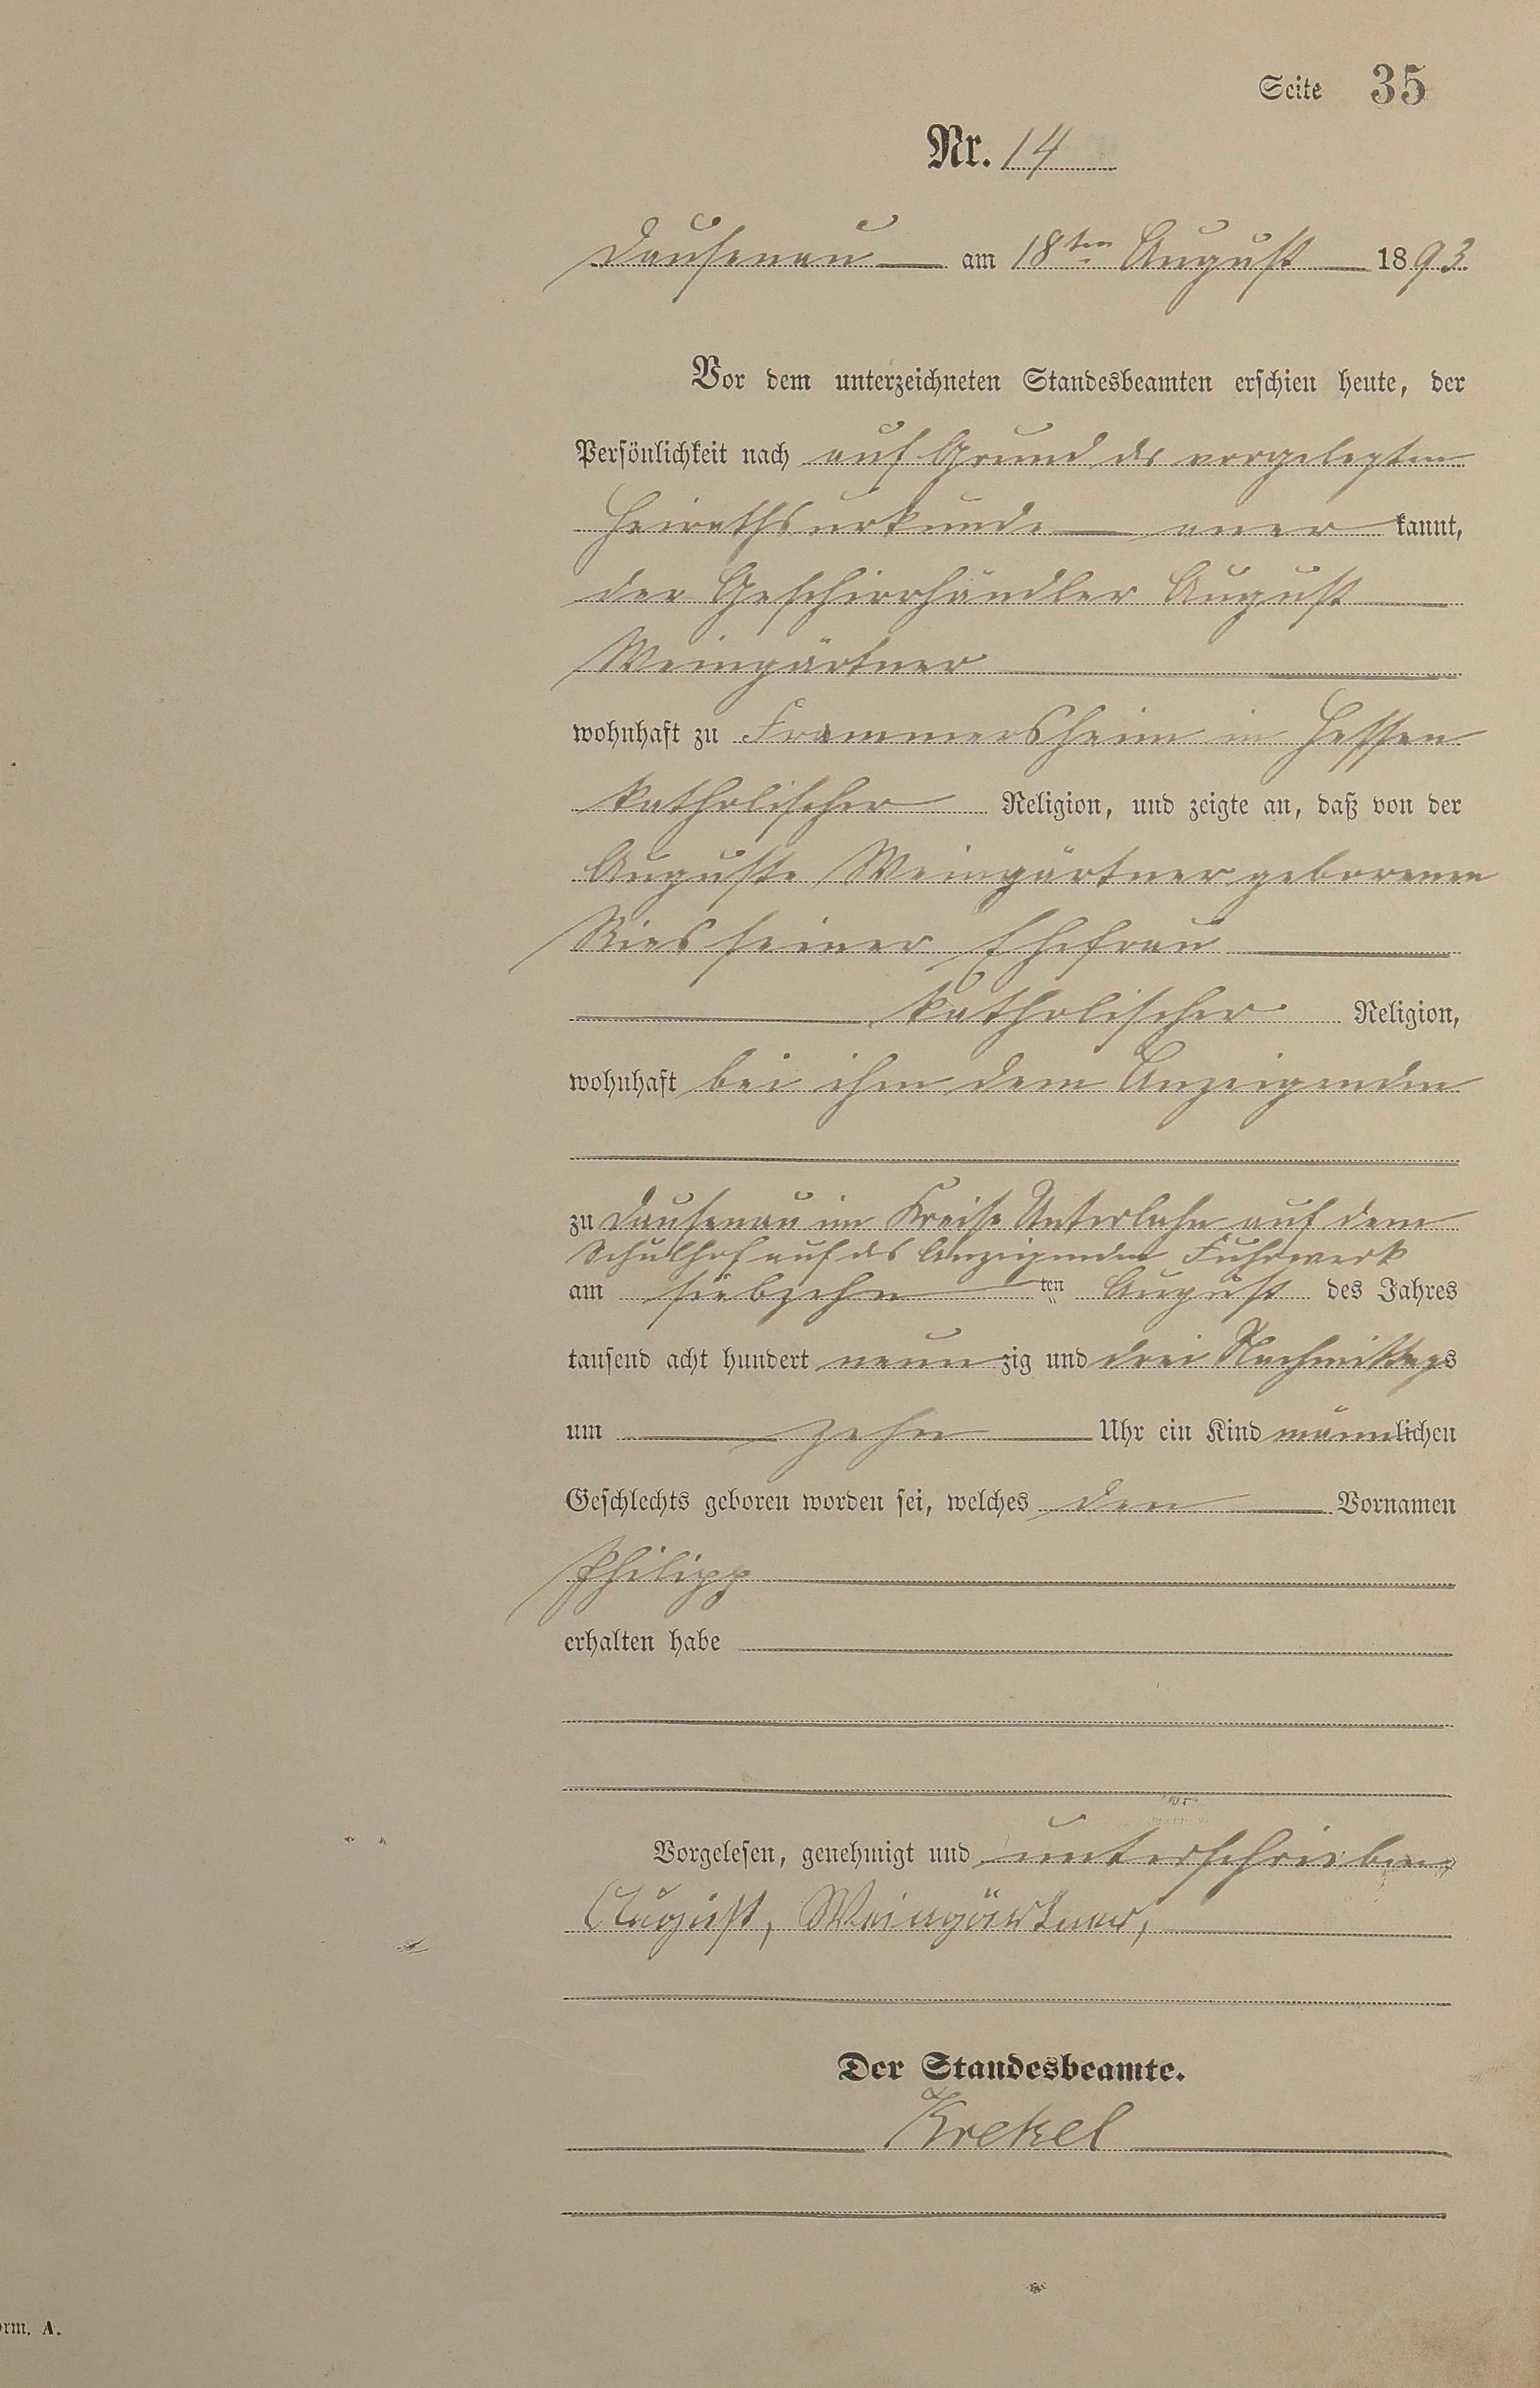 Seite 35
Nr. 14
Dausenau am 18ten August 1893
Vor dem unterzeichneten Standesbeamten erschien heute, der
Persönlichkeit nach auf Grund der vorgelegten
Heirathsurkunde aner kannt,
der Geschirrhändler August
Weingärtner
wohnhaft zu Frammersheim in Hessen
katholischer Religion, und zeigte an, daß von der
Auguste Weingärtner geborenen
Ries seiner Ehefrau
katholischer Religion,
wohnhaft bei ihm dem Anzeigenden
zu Dausenau im Kreise Unterlahn auf dem
Schulhof auf des Anzeigenden Fuhrwerk
am siebzehn ten August des Jahres
tausend acht hundert neun zig und drei Nachmittags
um zehn Uhr ein Kind männlichen
Geschlechts geboren worden sei, welches den Vornamen
Philipp
erhalten habe
Vorgelesen, genehmigt und unterschrieben
August, Weingärtner,
Der Standesbeamte.
Krekel
orm. A.